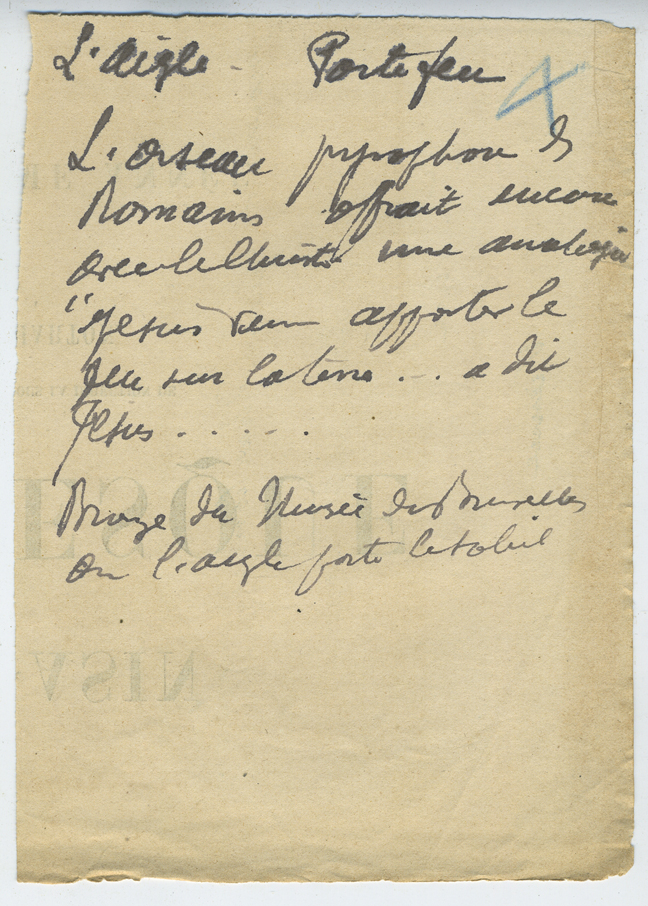 L'aigle - Portefeu 4
L'oiseau pyrophore des
Romains offrait encore
avec le Christ une analogie
"Jesus venu apporter le
feu sur la terre ... a dit
Jesus . . . . .
Bronze du Musée de Bruxelles
ou l'aigle porte le soleil